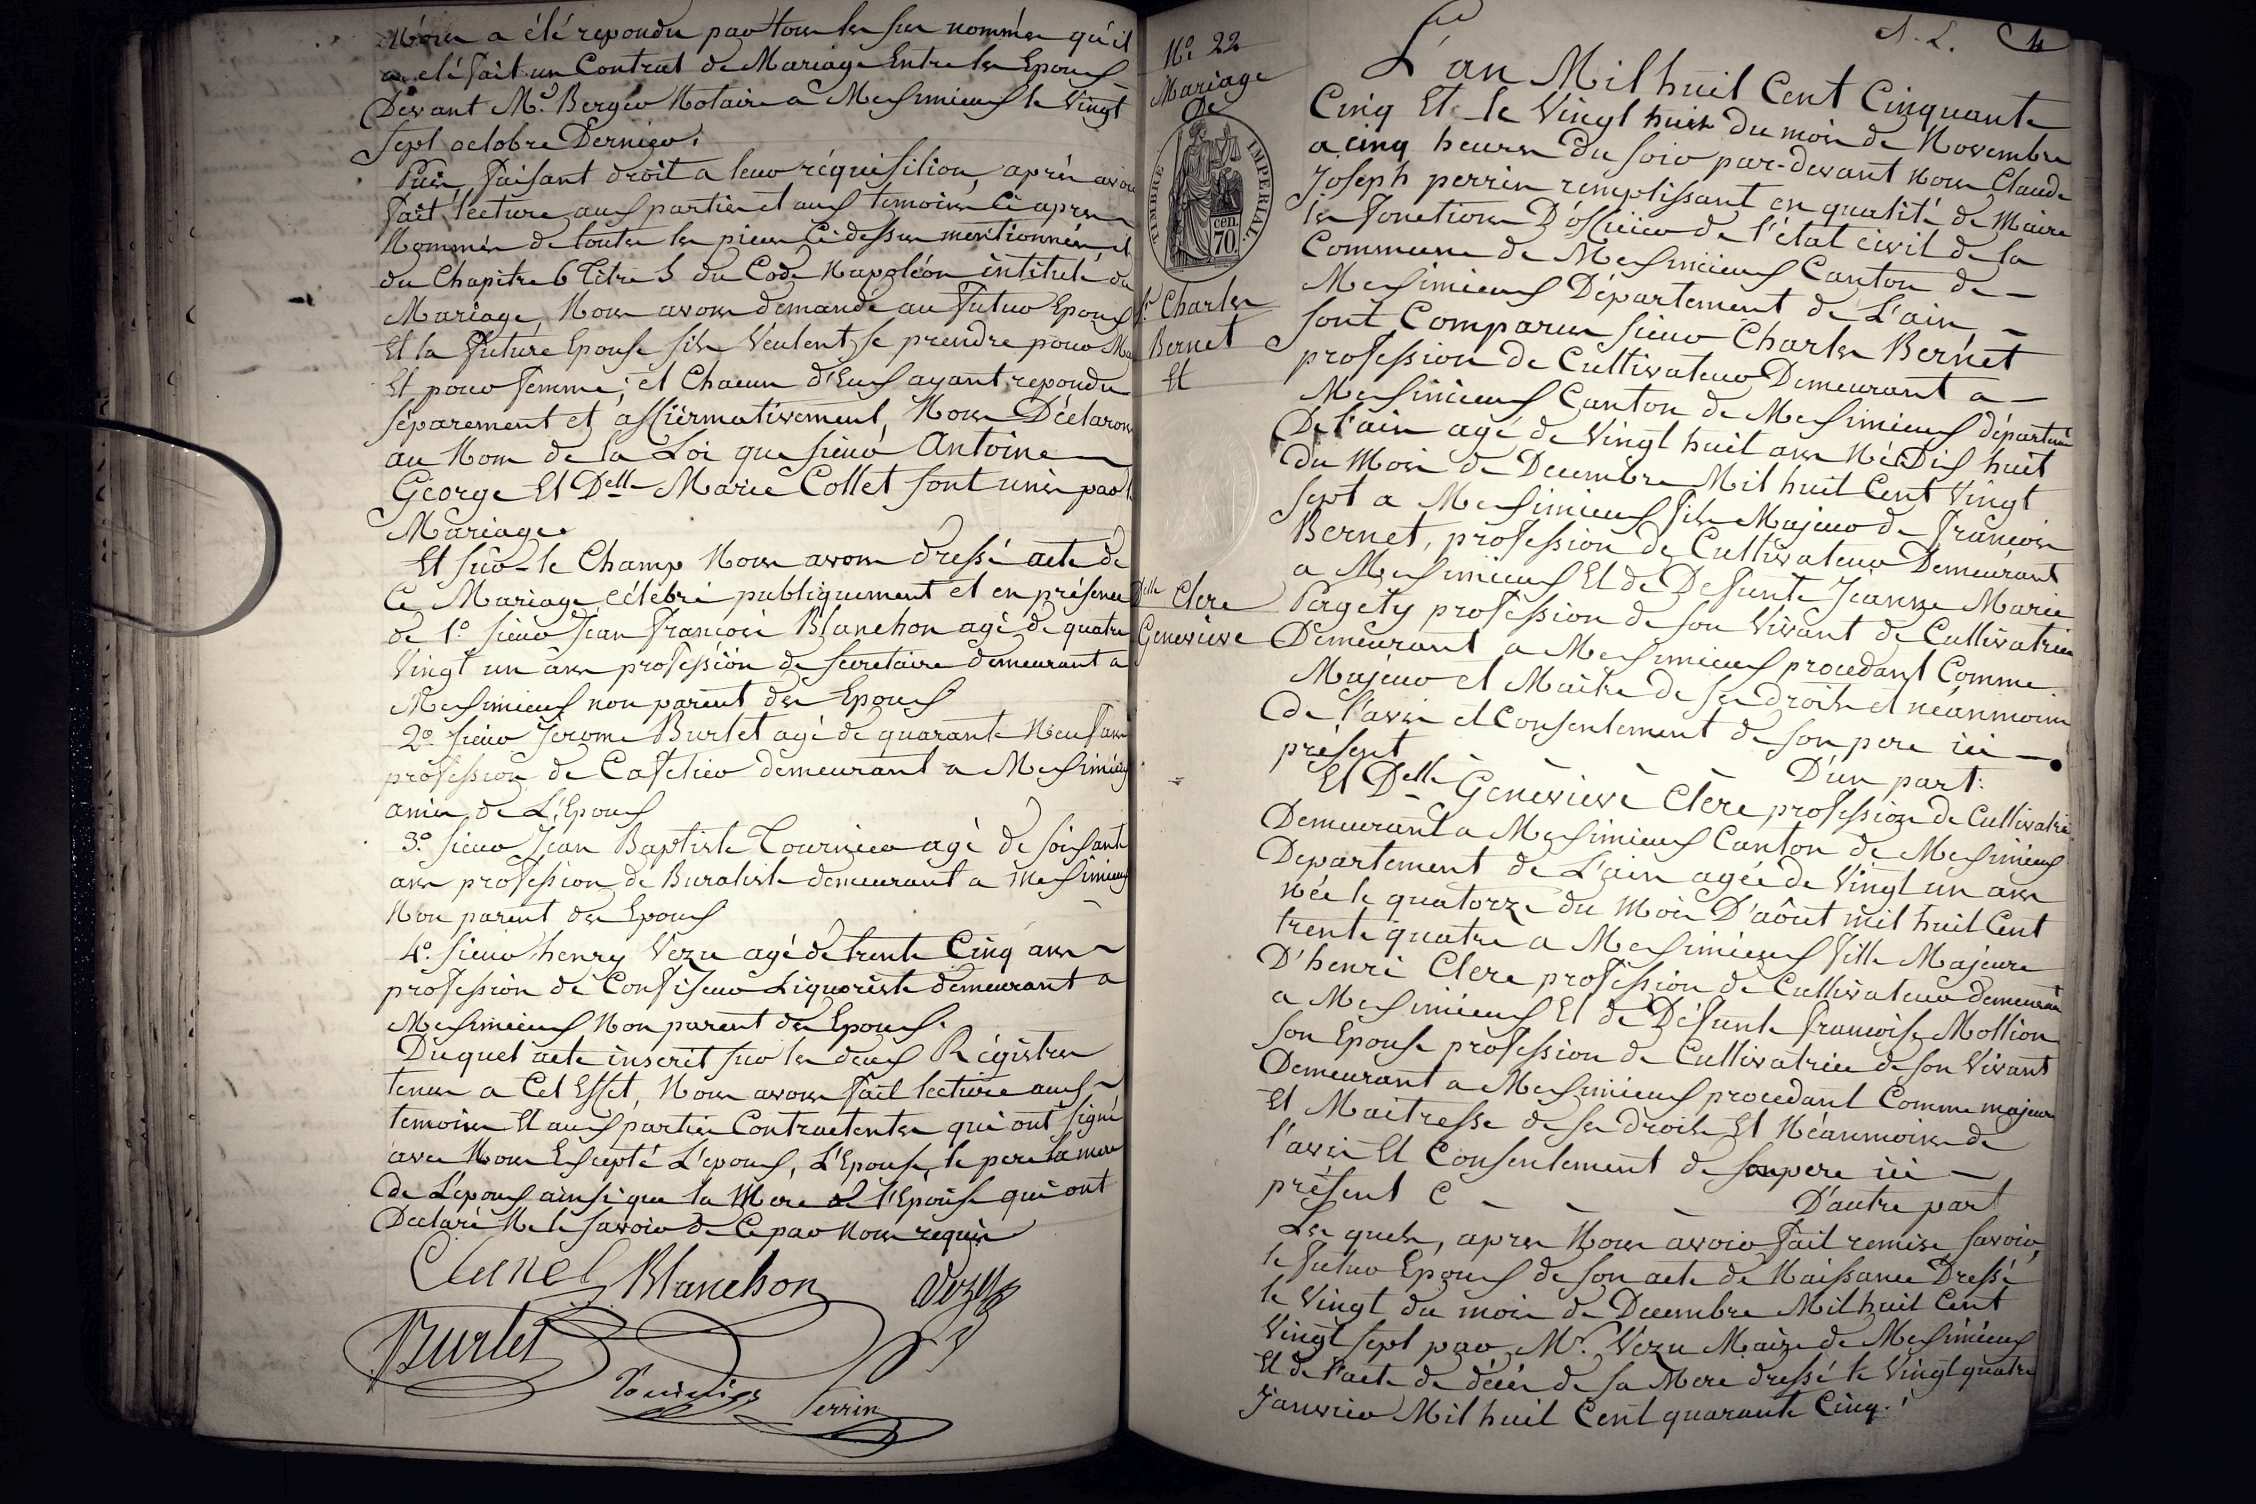 Nous a été repondu par tous les sus nommés qu'il
a été fait un Contrat de Mariage Entre les Epoux
Devant Me. Berger Notaire a Meximieux le Vingt
sept octobre Dernier.
Puis, faisant droit a leur réquisition, après avoir
fait lecture aux parties et aux temoins Ci après
Nommés de toutes les pieces Ci dessus mentionnées et
du Chapitre 6 Titre 5 du Code Napoléon intitulé du
Mariage, Nous avons demandé au Futur Epoux
Et la Future Epouse s'ils Veulent se prendre pour Mari
Et pour femme; et Chacun d'Eux ayant repondu
séparement et affiermativement, Nous Déclarons
au Nom de la Loi que sieur Antoine
George Et Delle Marie Collet sont unis par le
Mariage
Et sur-le Champ Nous avons dressé acte de
Ce Mariage célébré publiquement et en présence
de 1o sieur Jean François Blanchon agé de quatre
Vingt un ans profession de secretaire demeurant a
Meximieux non parent des Epoux
2o sieur Jerome Burlet agé de quarante Neuf ans
profession de Cafetier demeurant a Meximieux
amis de L'Epoux
3o sieur Jean Baptiste Tournier agé de soixante
ans profession de Buraliste demeurant a Meximieux
Non parent des Epoux
4o sieur henry Vezu agé de trente Cinq ans
profession de Confiseur Liquoriste demeurant a
Meximieux Non parent des Epoux.
Duquel acte inscrit sur les deux Régistres
tenus a Cet Effet, Nous avons fait lecture aux
temoins Et aux parties Contractentes qui ont signé
avec Nous Excepté L'epoux, L'Epouse, le pere la mere
de L'epoux ainsi que la Mère de l'Epouse qui ont
Declaré Ne le savoir de Ce par Nous requis
Blanchon Vezu
Burlet
Tournier Perrin
No 22
Mariage
De
TIMBRE IMPERIAL.
cen.
70.
Sr Charles
Bernet
Et
Delle Clere
Genevieve
L'an Mil huit Cent Cinquante
Cinq Et le Vingt huit du mois de Novembre
a cinq heures Du soir par-devant nous Claude
Joseph perrin remplissant en qualité de Maire
les Fonctions D'officier de l'état civil de la
Commune de Meximieux Canton de
Meximieux Département de L'ain
sont Comparus sieur Charles Bernet
profession de Cultivateur Demeurant a
Meximieux Canton de Meximieux départemt
De l'ain agé de Vingt huit ans Né Dix huit
Du Mois de Decembre Mil huit Cent Vingt
sept a Meximieux fils Majeur de François
Bernet, profession de Cultivateur Demeurant
a Meximieux Et de Defunte Jeanne Marie
Pergety profession de son Vivant de Cultivatrice
Demeurant a Meximieux procedant Comme
Majeur et Maitre de ses droits et néanmoins
de l'avis et Consentement de son pere ici
présent D'un part.
Et Delle Génévievè Clère profession de Cultivatrice
Demeurant a Meximieux Canton de Meximieux
Departement de L'ain agée de Vingt un ans
née le quatorze du Mois D'août mil huit Cent
trente quatre a Meximieux Fille Majeure
D'henri Clere profession de Cultivateur demeurant
a Meximieux Et de Défunte Françoise Mollion
son Epouse profession de Cultivatrice de son Vivant
Demeurant a Meximieux procedant Comme majeure
Et Maitresse de ses droits Et Néanmoins de
l'avis Et Consentement de son pere ici
présent D'autre part
Les quels, apres Nous avoir fait remise savoir,
le Futur Epoux de son acte de Naissance Dressé
le Vingt du mois de Decembre Mil huit Cent
Vingt sept par Mr. Vezu Maire de Meximieux
Et de l'acte de décès de sa Mere dressé le Vingt quatre
Janvier Mil huit Cent quarante Cinq.